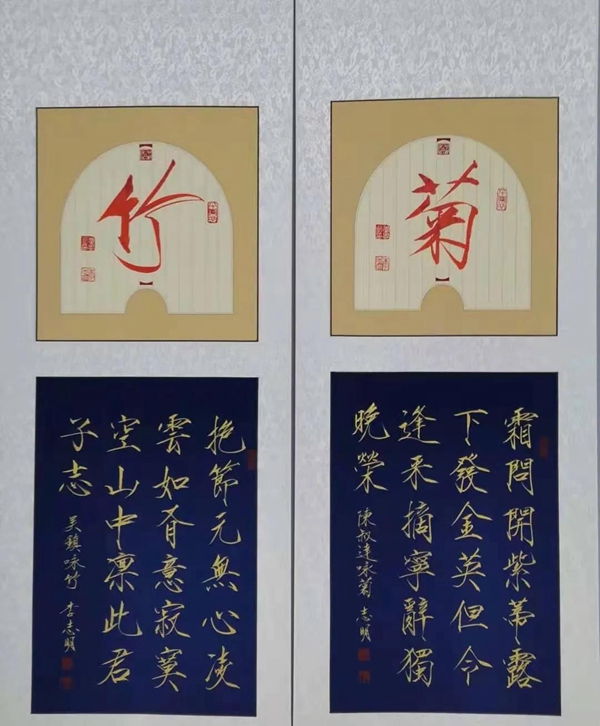 菊
霜問開紫蒂露
下發金英但令
逢采摘寧辭獨
晚榮
陳叔達詠菊 志明
竹
抱節元無心凌
雲如有意寂寞
空山中凜此君
子志
吳鎮詠竹 李志明